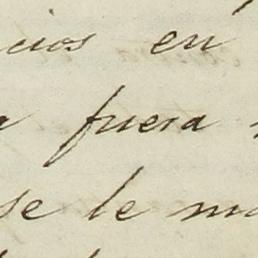 cios en
fuera
se le